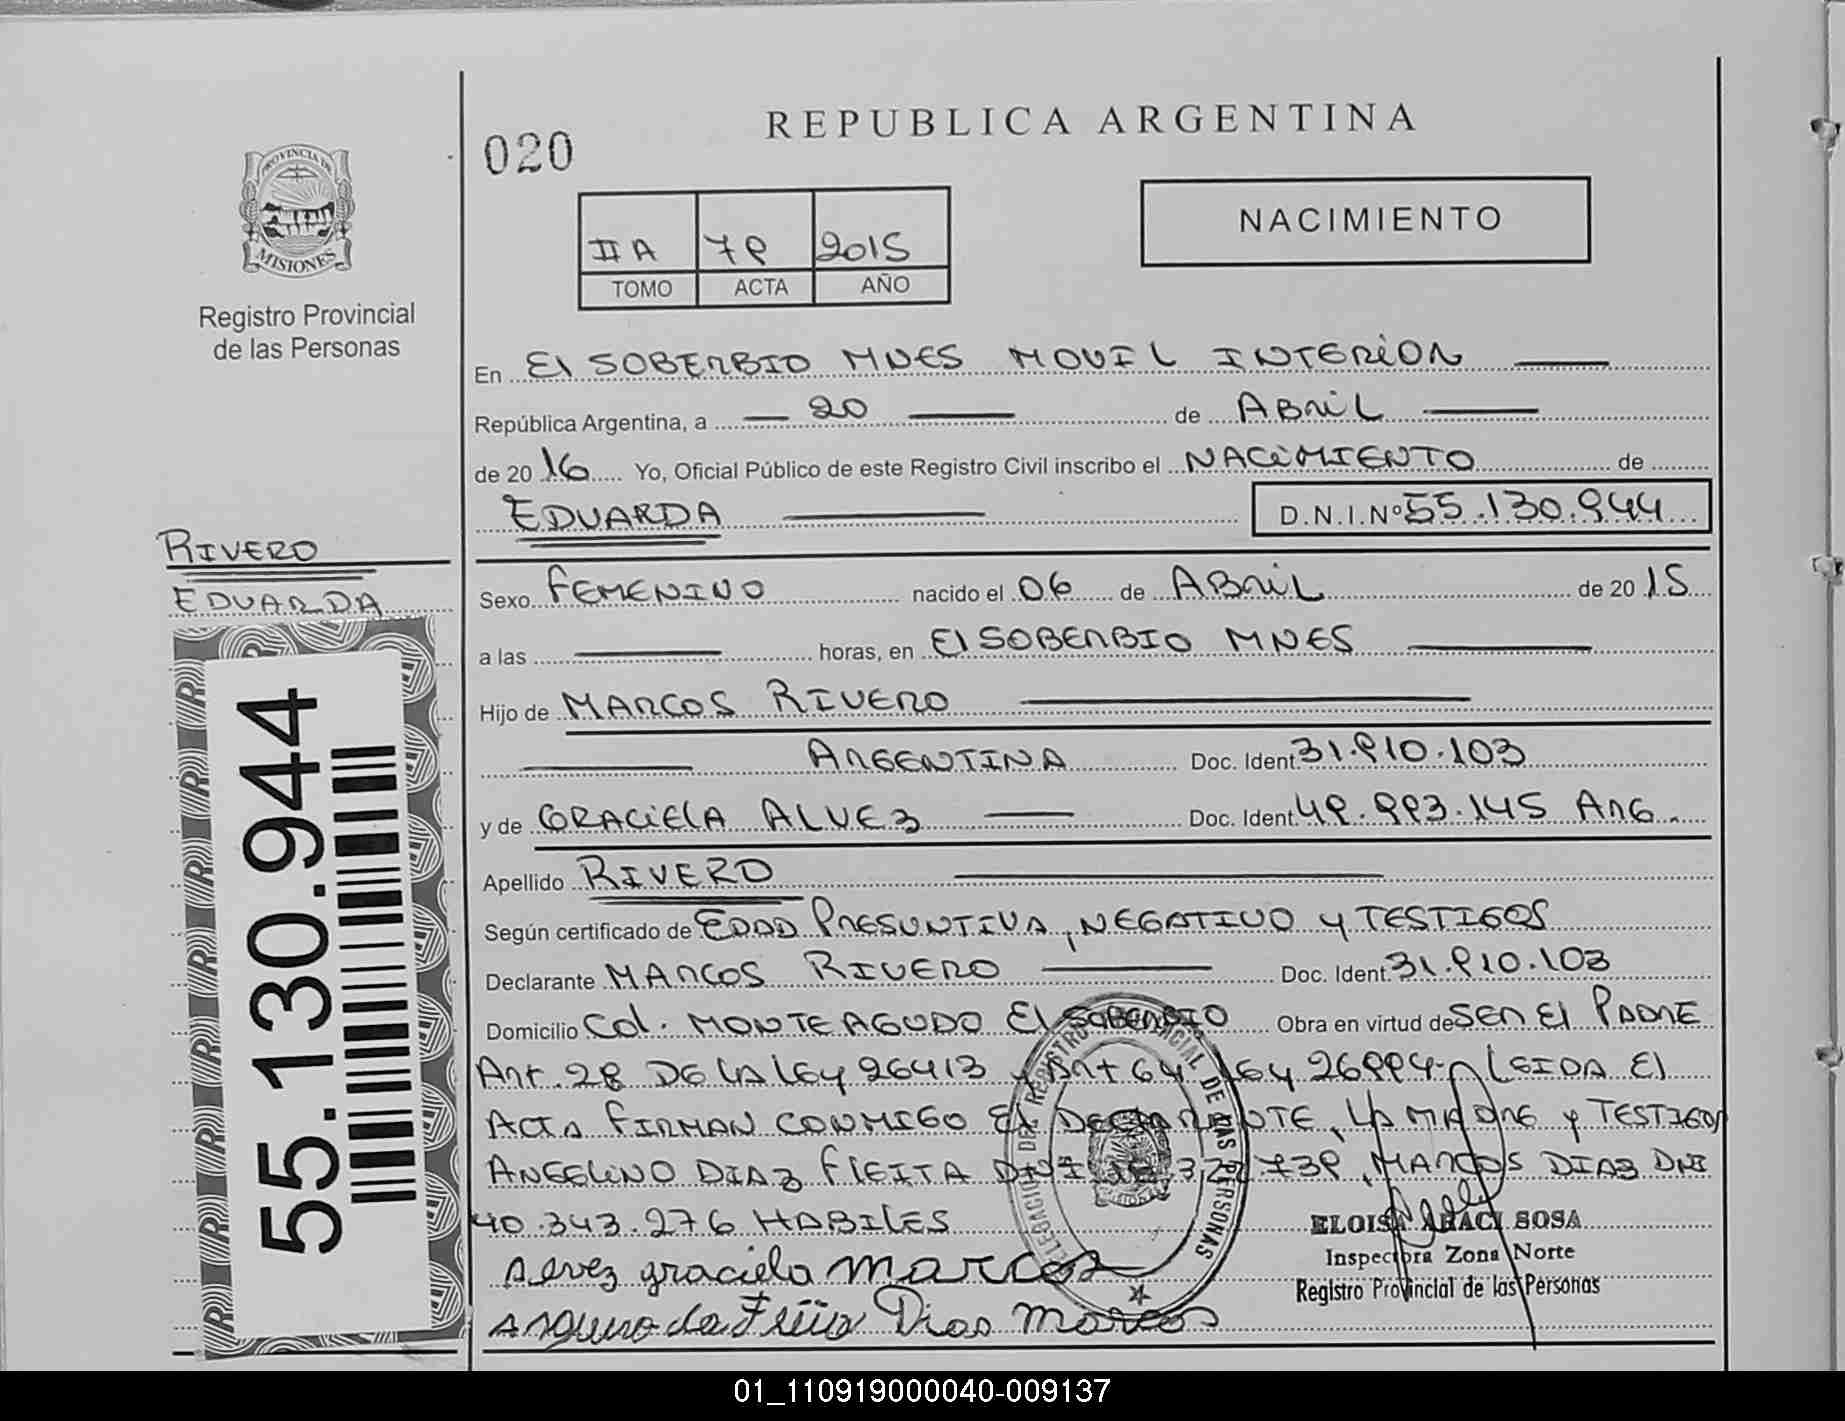 REPUBLICA ARGENTINA
020
PROVINCIA DE
MISIONES
Registro Provincial
de las Personas
IIA 78 2015
TOMO ACTA AÑO
NACIMIENTO
En El SOBERBIO MNES MOVIL INTERIOR
República Argentina, a 20 de ABRIL
de 2016 Yo, Oficial Público de este Registro Civil inscribo el NACIMIENTO de
EDUARDA D.N.I.Nº 55.130.944
RIVERO
EDUARDA
55.130.944
Sexo FEMENINO nacido el 06 de ABRIL de 2015
a las horas, en El SOBERBIO MNES
Hijo de MARCOS RIVERO
ARGENTINA Doc. Ident. 31.810.103
y de GRACIELA ALVEZ Doc. Ident. 48.883.145 ARG.
Apellido RIVERO
Según certificado de EDAD PRESUNTIVA, NEGATIVO y TESTIGOS
Declarante MARCOS RIVERO Doc. Ident. 31.810.103
Domicilio Col. MONTEAGUDO El SOBERBIO Obra en virtud de SER El PADRE
Art. 28 DE LA LEY 26413 y Art 64 LEY 26994- LEIDA El
ACTA FIRMAN CONMIGO El DECLARANTE, LA MADRE y TESTIGOS
ANGELINO DIAZ FLEITA DNI 738, MARCOS DIAZ DNI
40.343.276 HABILES
alvez graciela marcos
Dias marcos
DELEGACION DEL REGISTRO PROVINCIAL DE LAS PERSONAS
ELOISA ARACI SOSA
Inspectora Zona Norte
Registro Provincial de las Personas
01_110919000040-009137